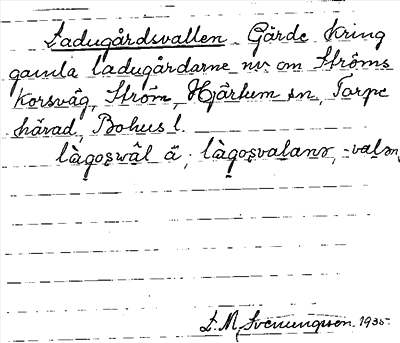 Ladugårdsvallen Gärde kring
gamla ladugårdarne nv om Ströms
korsväg, Ström, Hjärtum sn, Torpe
härad, Bohus l.
làgoswàl ä, làgosvalanɤ, -valɤn,
L. M. Svenungsson. 1935.